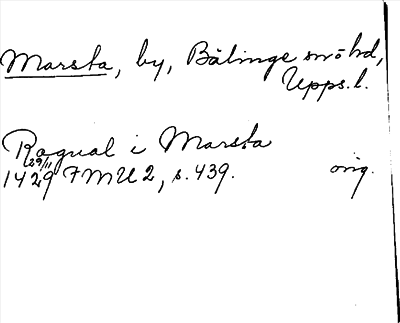 Marsta, by, Bälinge sn o hd,
Upps. l.
Ragual i Marsta
29/11
1429 FMU 2, s. 439. orig.